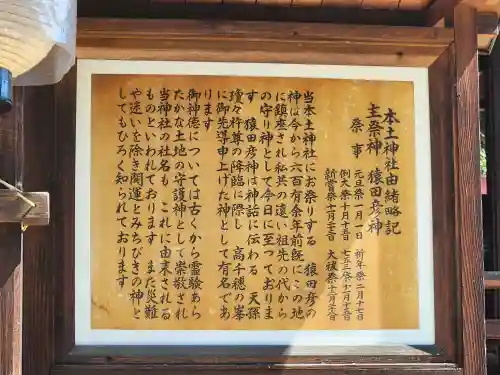 本土神社由緒略記
主祭神 猿田彦神
祭事
元旦祭一月一日 祈年祭二月十七日
例大祭十月十五日 七五三祭十一月十五日
新嘗祭十一月二十三日 大祓祭十二月三十一日
当本土神社にお祭りする 猿田彦の
神は今から六百有余年前既にこの地
に鎮座され私共の遠い祖先の代から
の守り神として今日に至っておりま
す 猿田彦神は神話に伝わる 天孫
瓊々杵尊の降臨に際し 高千穂の峯
に御先導申上げた神として有名であ
ります
御神徳については古くから霊験あら
たかな土地の守護神として崇敬され
当神社の社名も これに由来される
ものといわれております また災難
や迷いを除き開運とみちびきの神と
してもひろく知られております